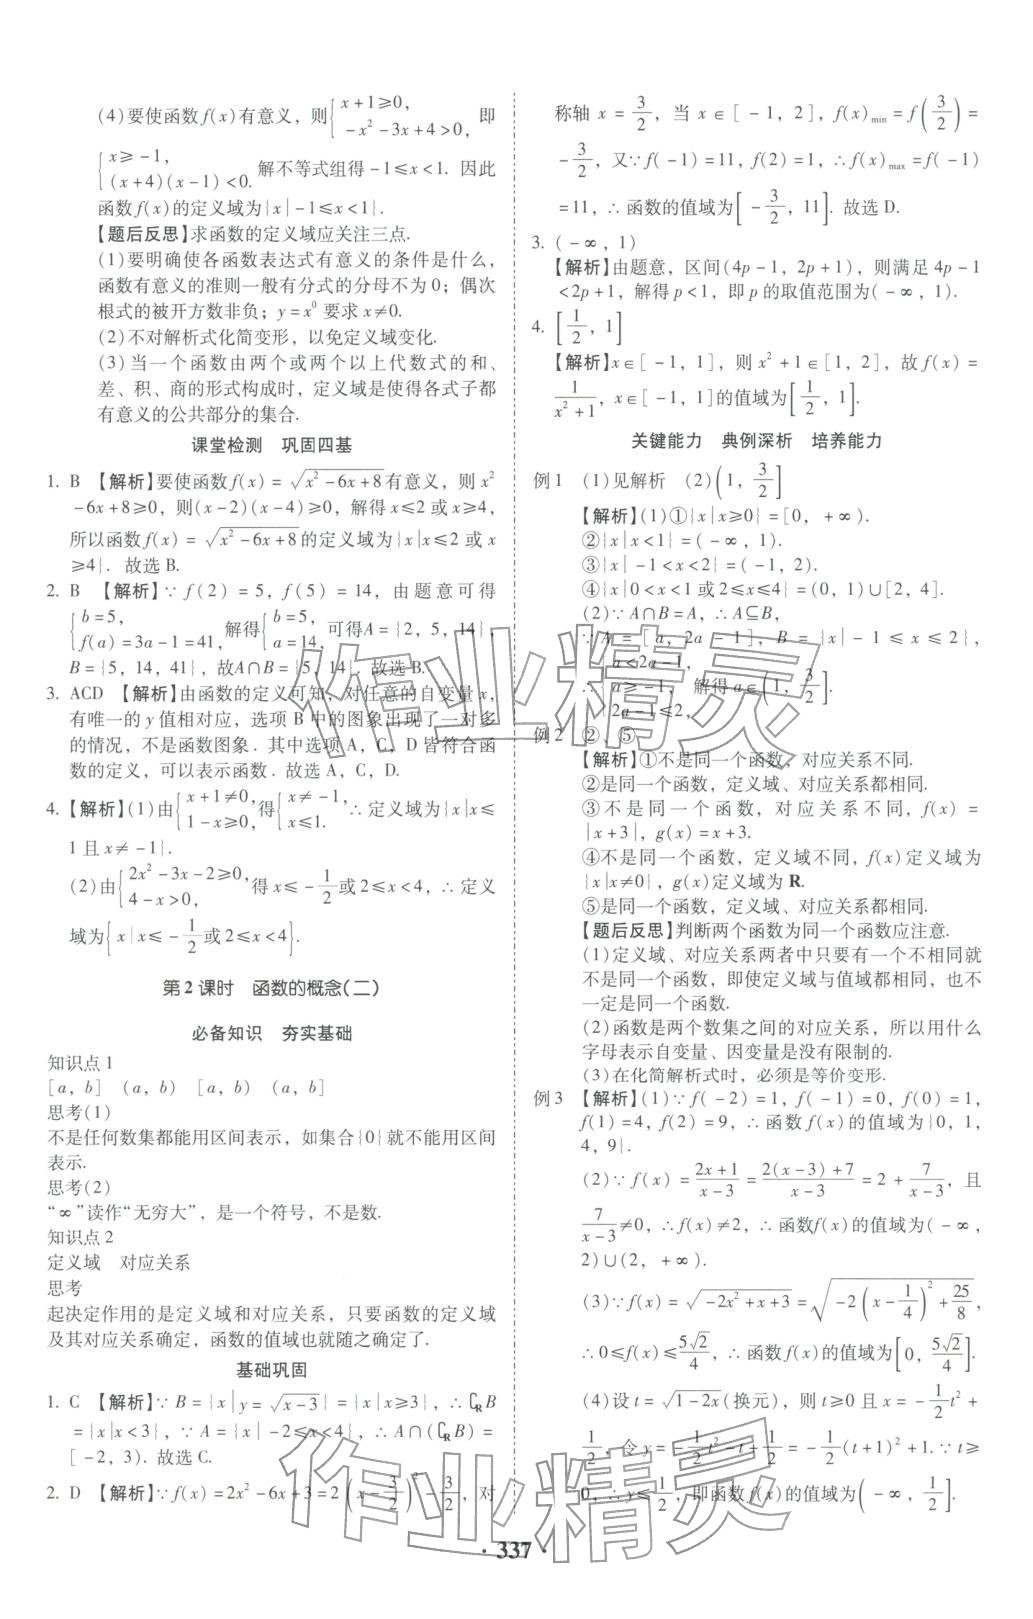 (4)要使函数f(x)有意义，则{x+1≥0, -x²-3x+4>0, 即
{x≥-1, (x+4)(x-1)<0. 解不等式组得-1≤x<1. 因此
函数f(x)的定义域为{x|-1≤x<1}.
【题后反思】求函数的定义域应关注三点.
(1)要明确使各函数表达式有意义的条件是什么，
函数有意义的准则一般有分式的分母不为0；偶次
根式的被开方数非负；y=x⁰ 要求x≠0.
(2)不对解析式化简变形，以免定义域变化.
(3)当一个函数由两个或两个以上代数式的和、
差、积、商的形式构成时，定义域是使得各式子都
有意义的公共部分的集合.
课堂检测 巩固四基
1. B 【解析】要使函数f(x)=√(x²-6x+8)有意义，则x²
-6x+8≥0，则(x-2)(x-4)≥0，解得x≤2或x≥4，
所以函数f(x)=√(x²-6x+8)的定义域为{x|x≤2或x
≥4}. 故选B.
2. B 【解析】∵f(2)=5，f(5)=14，由题意可得
{b=5, f(a)=3a-1=41, 解得{b=5, a=14, 可得A={2，5，14}，
B={5，14，41}，故A∩B={5，14}. 故选B.
3. ACD 【解析】由函数的定义可知，对任意的自变量x，
有唯一的y值相对应，选项B中的图象出现了一对多
的情况，不是函数图象. 其中选项A，C，D皆符合函
数的定义，可以表示函数. 故选A，C，D.
4. 【解析】(1)由{x+1≠0, 1-x≥0, 得{x≠-1, x≤1. ∴定义域为{x|x≤
1且x≠-1}.
(2)由{2x²-3x-2≥0, 4-x>0, 得x≤-1/2或2≤x<4，∴定义
域为{x|x≤-1/2或2≤x<4}.
第2课时 函数的概念(二)
必备知识 夯实基础
知识点1
[a，b] (a，b) [a，b) (a，b]
思考(1)
不是任何数集都能用区间表示，如集合{0}就不能用区间
表示.
思考(2)
“∞”读作“无穷大”，是一个符号，不是数.
知识点2
定义域 对应关系
思考
起决定作用的是定义域和对应关系，只要函数的定义域
及其对应关系确定，函数的值域也就随之确定了.
基础巩固
1. C 【解析】∵B={x|y=√(x-3)}={x|x≥3}，∴∁RB
={x|x<3}，∵A={x|-2≤x<4}，∴A∩(∁RB)=
[-2，3). 故选C.
2. D 【解析】∵f(x)=2x²-6x+3=2(x-3/2)²-3/2，对
称轴x=3/2，当x∈[-1，2]，f(x)min=f(3/2)=
-3/2，又∵f(-1)=11，f(2)=1，∴f(x)max=f(-1)
=11，∴函数的值域为[-3/2，11]. 故选D.
3. (-∞，1)
【解析】由题意，区间(4p-1，2p+1)，则满足4p-1
<2p+1，解得p<1，即p的取值范围为(-∞，1).
4. [1/2，1]
【解析】x∈[-1，1]，则x²+1∈[1，2]，故f(x)=
1/(x²+1)，x∈[-1，1]的值域为[1/2，1].
关键能力 典例深析 培养能力
例1 (1)见解析 (2)(1，3/2]
【解析】(1)①{x|x≥0}=[0，+∞).
②{x|x<1}=(-∞，1).
③{x|-1<x<2}=(-1，2).
④{x|0<x<1或2≤x≤4}=(0，1)∪[2，4].
(2)∵A∩B=A，∴A⊆B，
∵A=[a，2a-1]，B={x|-1≤x≤2}，
∴{a<2a-1, a≥-1, 2a-1≤2, 解得a∈(1，3/2].
例2 ②、⑤
【解析】①不是同一个函数，对应关系不同.
②是同一个函数，定义域、对应关系都相同.
③不是同一个函数，对应关系不同，f(x)=
|x+3|，g(x)=x+3.
④不是同一个函数，定义域不同，f(x)定义域为
{x|x≠0}，g(x)定义域为R.
⑤是同一个函数，定义域、对应关系都相同.
【题后反思】判断两个函数为同一个函数应注意.
(1)定义域、对应关系两者中只要有一个不相同
就不是同一个函数，即使定义域与值域都相同，也不
一定是同一个函数.
(2)函数是两个数集之间的对应关系，所以用什么
字母表示自变量、因变量是没有限制的.
(3)在化简解析式时，必须是等价变形.
例3 【解析】(1)∵f(-2)=1，f(-1)=0，f(0)=1，
f(1)=4，f(2)=9，∴函数f(x)的值域为{0，1，
4，9}.
(2)∵f(x)=(2x+1)/(x-3)=(2(x-3)+7)/(x-3)=2+7/(x-3)，且
7/(x-3)≠0，∴f(x)≠2，∴函数f(x)的值域为(-∞，
2)∪(2，+∞).
(3)∵f(x)=√(-2x²+x+3)=√(-2(x-1/4)²+25/8)，
∴0≤f(x)≤5√2/4，∴函数f(x)的值域为[0，5√2/4].
(4)设t=√(1-2x)(换元)，则t≥0且x=-1/2t²+
1/2，令y=-1/2t²-t+1/2=-1/2(t+1)²+1. ∵t≥
0，∴y≤1/2，即函数f(x)的值域为(-∞，1/2].
· 337 ·
作业精灵
作业精灵